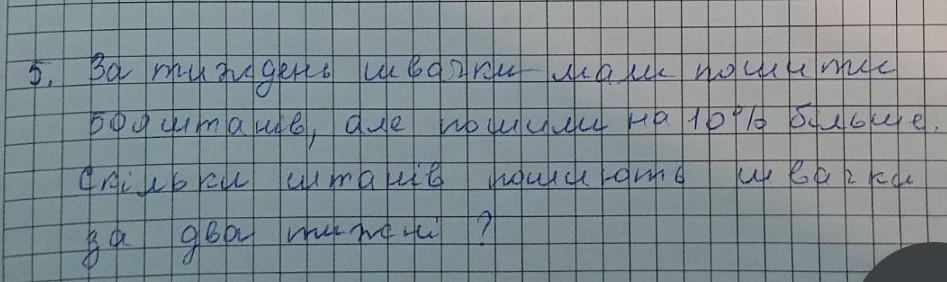 5. За тиждень швачки мали пошити
500 штанів, але пошили на 10% більше.
Скільки штанів пошиють швачки
за два тижні?